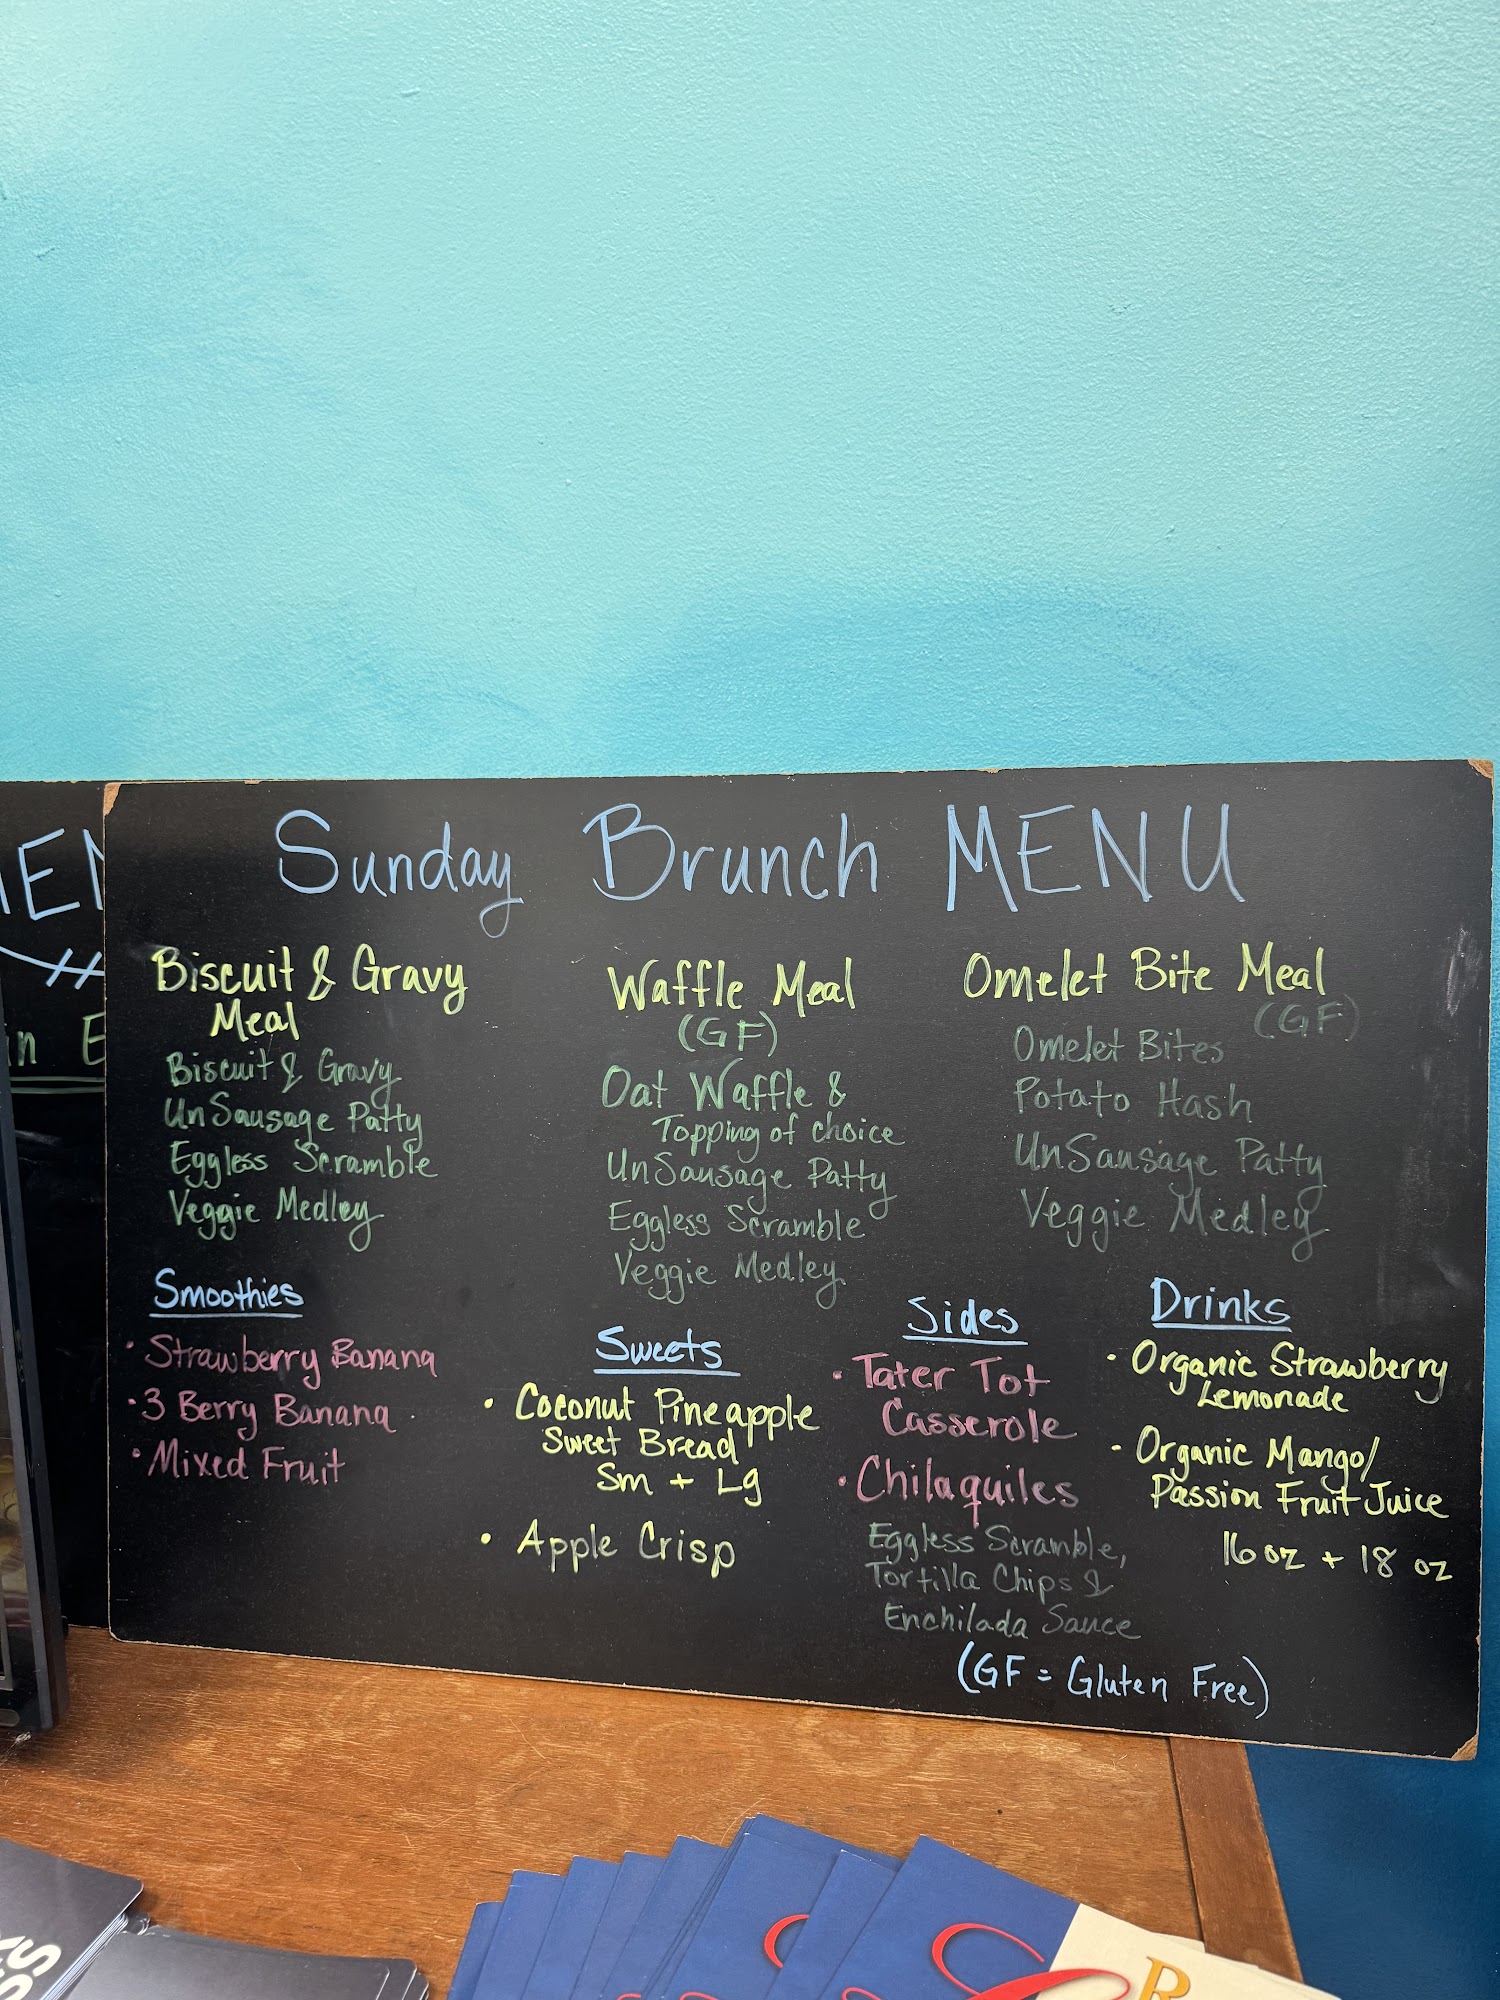 Sunday Brunch MENU
Biscuit & Gravy
Meal
Biscuit & Gravy
UnSausage Patty
Eggless Scramble
Veggie Medley
Waffle Meal
(GF)
Oat Waffle &
Topping of choice
UnSausage Patty
Eggless Scramble
Veggie Medley
Omelet Bite Meal
(GF)
Omelet Bites
Potato Hash
UnSausage Patty
Veggie Medley
Smoothies
• Strawberry Banana
• 3 Berry Banana
• Mixed Fruit
Sweets
• Coconut Pineapple
Sweet Bread
Sm + Lg
• Apple Crisp
Sides
• Tater Tot
Casserole
• Chilaquiles
Eggless Scramble,
Tortilla Chips &
Enchilada Sauce
Drinks
• Organic Strawberry
Lemonade
• Organic Mango/
Passion Fruit Juice
16 oz + 18 oz
(GF = Gluten Free)